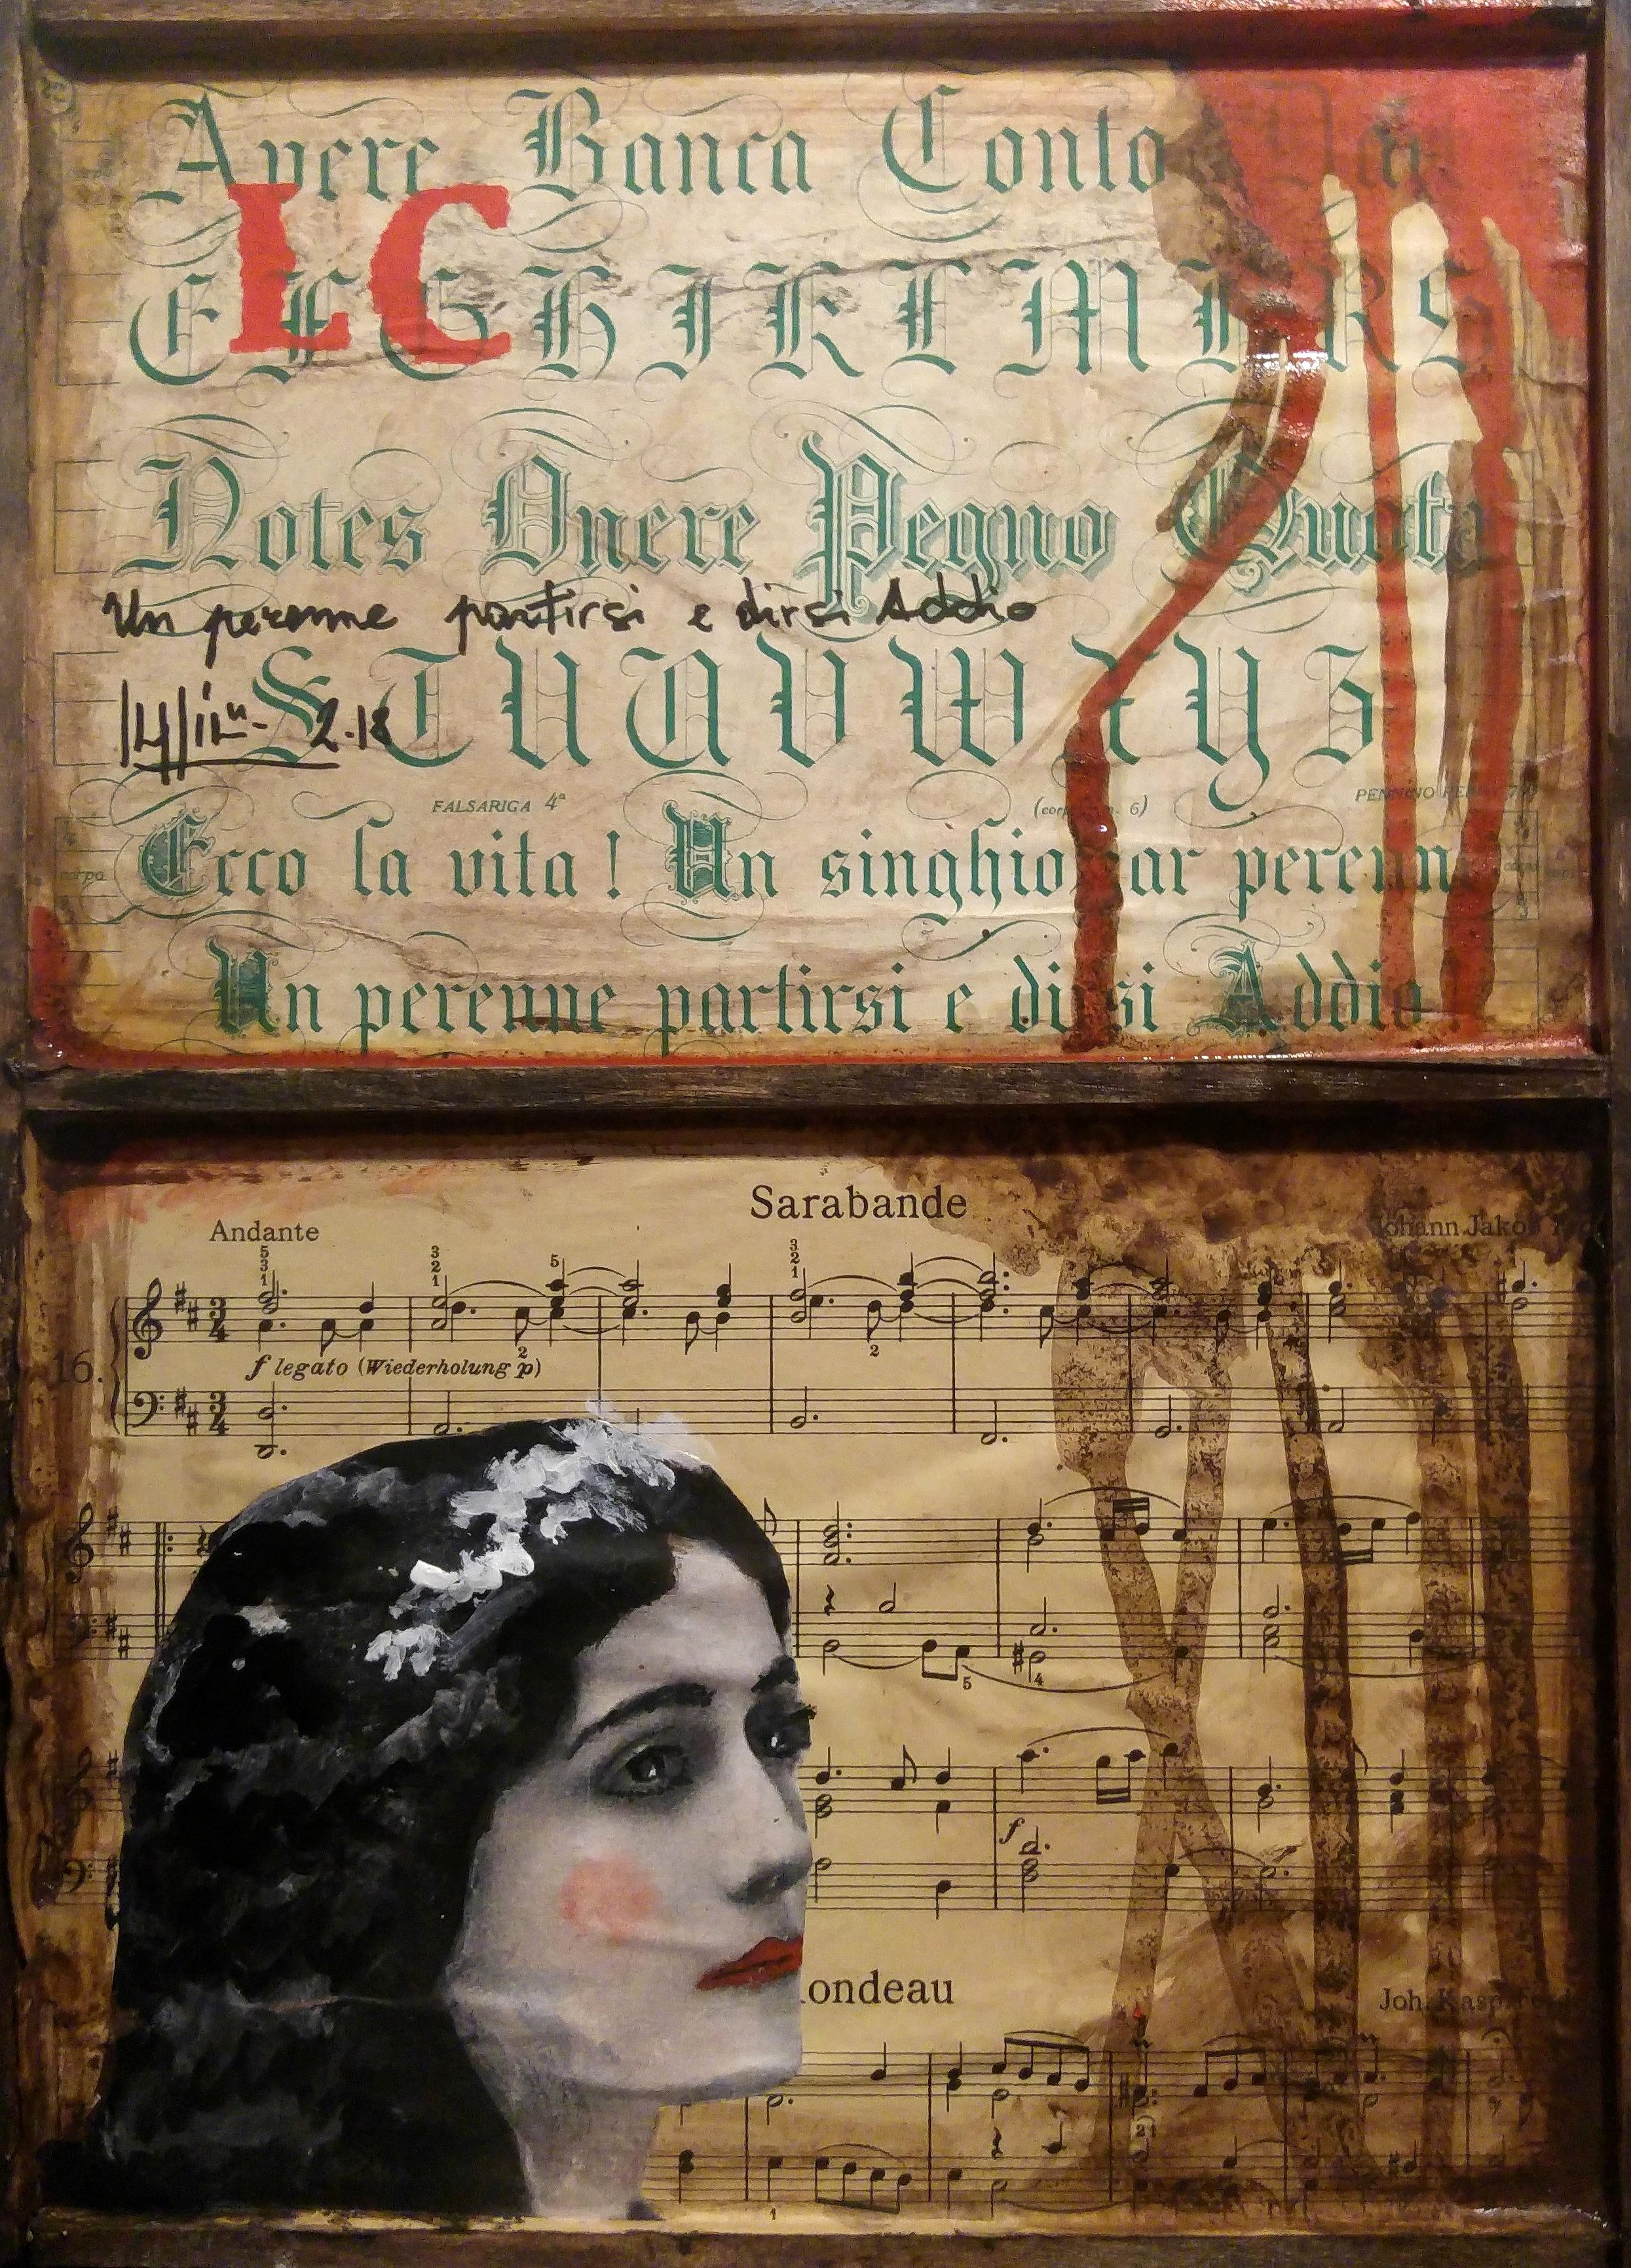 Avere Banca Conto Dar
LC
E F G H I J K L M N R S
Notes Onere Pegno Quota
Un perenne partirsi e dirsi Addio
2.18
S T U U V W X Y Z
FALSARIGA 4ª
PENNINO
corpo
Ecco la vita! Un singhio ar perenn
Un perenne partirsi e dirsi Addio.
Sarabande
Andante
Johann Jakob
5
3
1
3
2
1
5
3
2
1
2
2
16.
3
4
f legato (Wiederholung p)
3
4
5
4
f
ondeau
Joh. Kasp.
2)
1